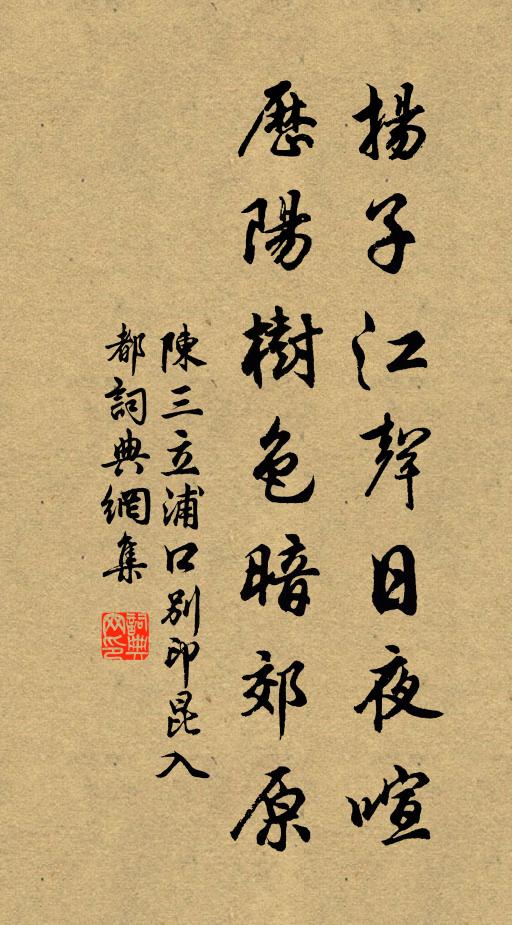 揚子江聲日夜喧
歷陽樹色暗郊原
陳三立浦口別印昆入
都詞典網集
詞典
网印